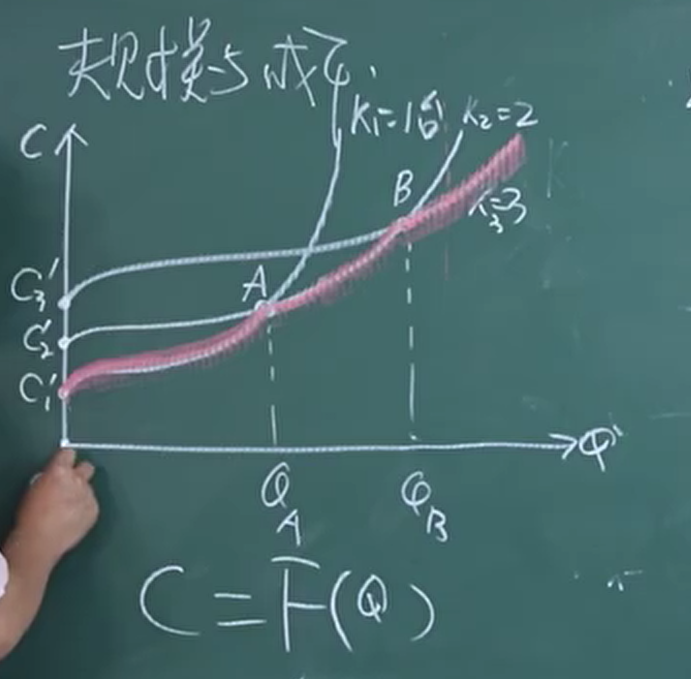 大规模与成本
C
K₁=1台 K₂=2
B
K₃=3
A
C₃'
C₂'
C₁'
Q
Q_A Q_B
C=F(Q)